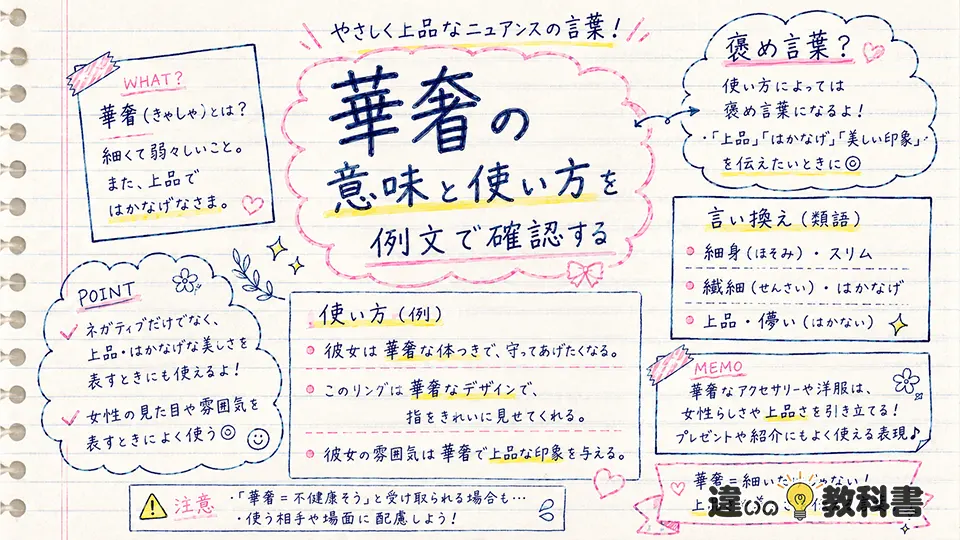 やさしく上品なニュアンスの言葉！
華奢の
意味と使い方を
例文で確認する
WHAT?
華奢(きゃしゃ)とは？
細くて弱々しいこと。
また、上品で
はかなげなさま。
褒め言葉？
使い方によっては
褒め言葉になるよ！
・「上品」「はかなげ」「美しい印象」
を伝えたいときに◎
言い換え(類語)
細身(ほそみ)・スリム
繊細(せんさい)・はかなげ
上品・儚い(はかない)
POINT
ネガティブだけでなく、
上品・はかなげな美しさを
表すときにも使えるよ！
女性の見た目や雰囲気を
表すときによく使う◎
使い方(例)
彼女は華奢な体つきで、守ってあげたくなる。
このリングは華奢なデザインで、
指をきれいに見せてくれる。
彼女の雰囲気は華奢で上品な印象を与える。
MEMO
華奢なアクセサリーや洋服は、
女性らしさや上品さを引き立てる！
プレゼントや紹介にもよく使える表現♪
注意
・「華奢＝不健康そう」と受け取られる場合も…
・使う相手や場面に配慮しよう！
華奢＝細い
ない！
上
違いの教科書